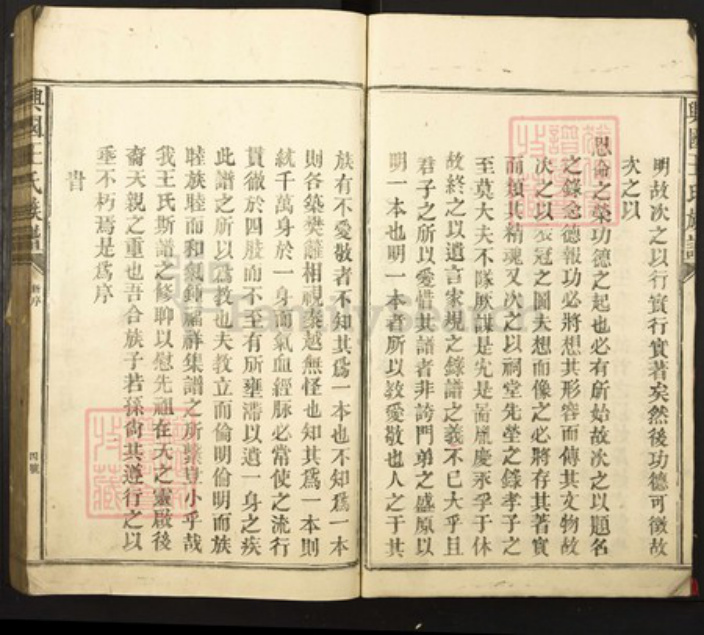 明故次之以行實行實著矣然後功德可徵故
次之以
恩倫之榮功德之起也必有所始故次之以題名
之錄念德報功必將想其形容而傳其文物故
次之以衣冠之圖夫想而像之必將存其著實
而類其精魂又次之以祠堂先塋之錄孝子之
至莫大夫不隊厥謀是先是啚胤慶永孚于休
故終之以遺言家規之錄譜之義不已大乎且
君子之所以愛惜其譜者非誇門弟之盛原以
明一本也明一本者所以教愛敬也人之于其
族有不愛敬者不知其為一本也不知為一本
則各築樊籬相視秦越無怪也知其為一本則
統千萬身於一身而氣血經脉必常使之流行
貫徹於四肢而不至有所壅滯以遺一身之疾
此譜之所以為教也夫教立而倫明倫明而族
睦族睦而和氣鍾福祥集譜之所繫豈小乎哉
我王氏斯譜之修聊以慰先祖在天之靈啟後
裔天親之重也吾合族子若孫尚其遵行之以
垂不朽焉是為序
旹
興國王氏族譜
新序
四號
興國王氏族譜
FamilySearch